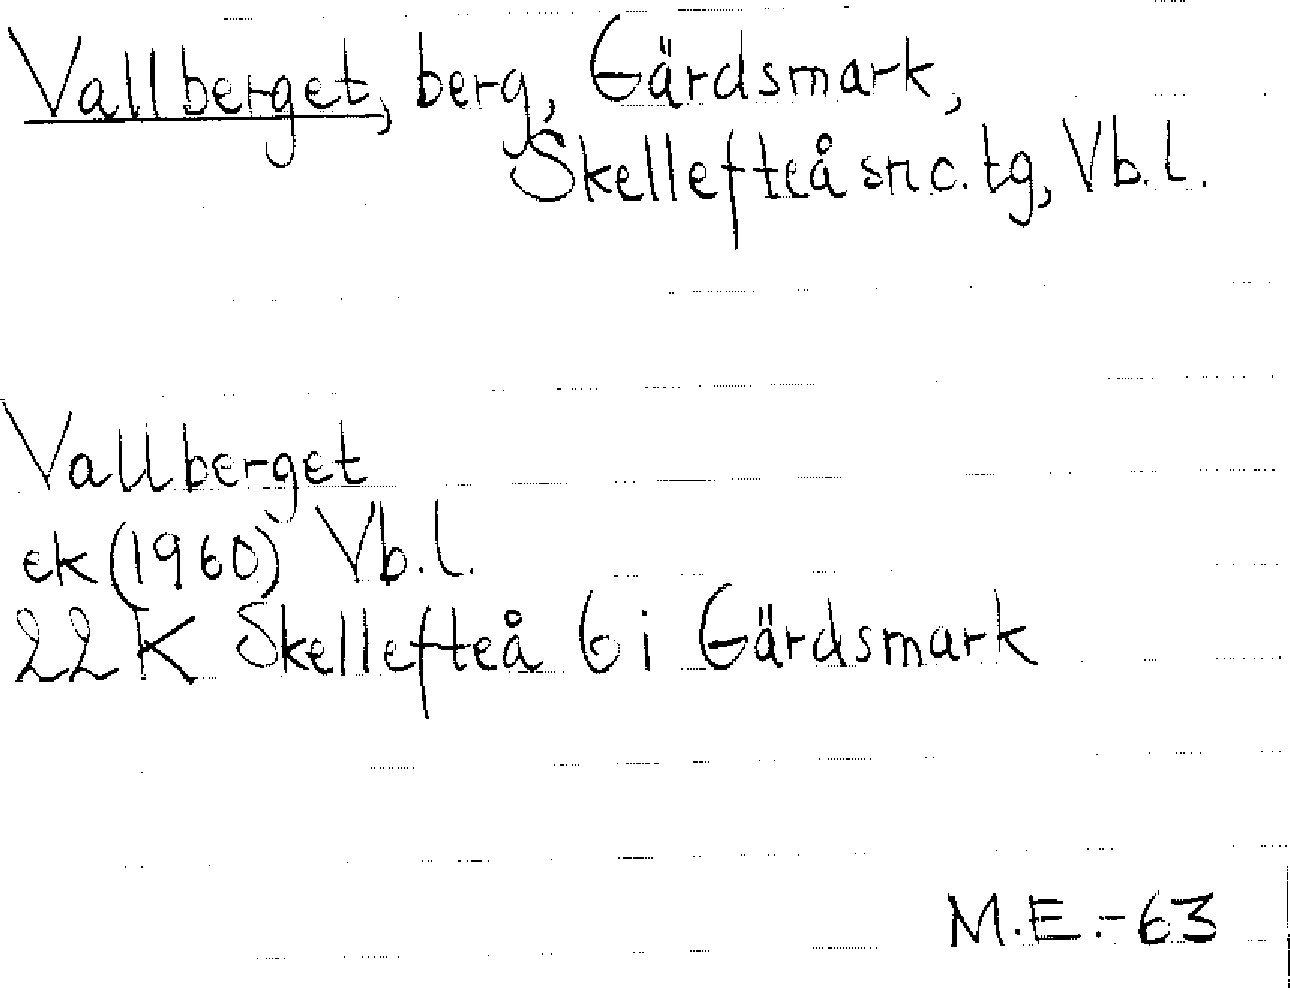 Vallberget, berg, Gärdsmark,
Skellefteå sn o. tg, Vb. l.
Vallberget
ek (1960) Vb. l.
22 K Skellefteå 6 i Gärdsmark
M.E.-63